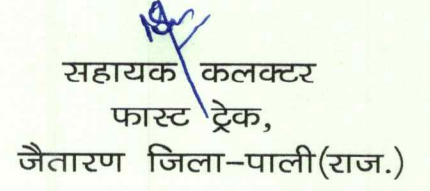 सहायक कलक्टर
फास्ट ट्रेक,
जैतारण जिला-पाली(राज.)